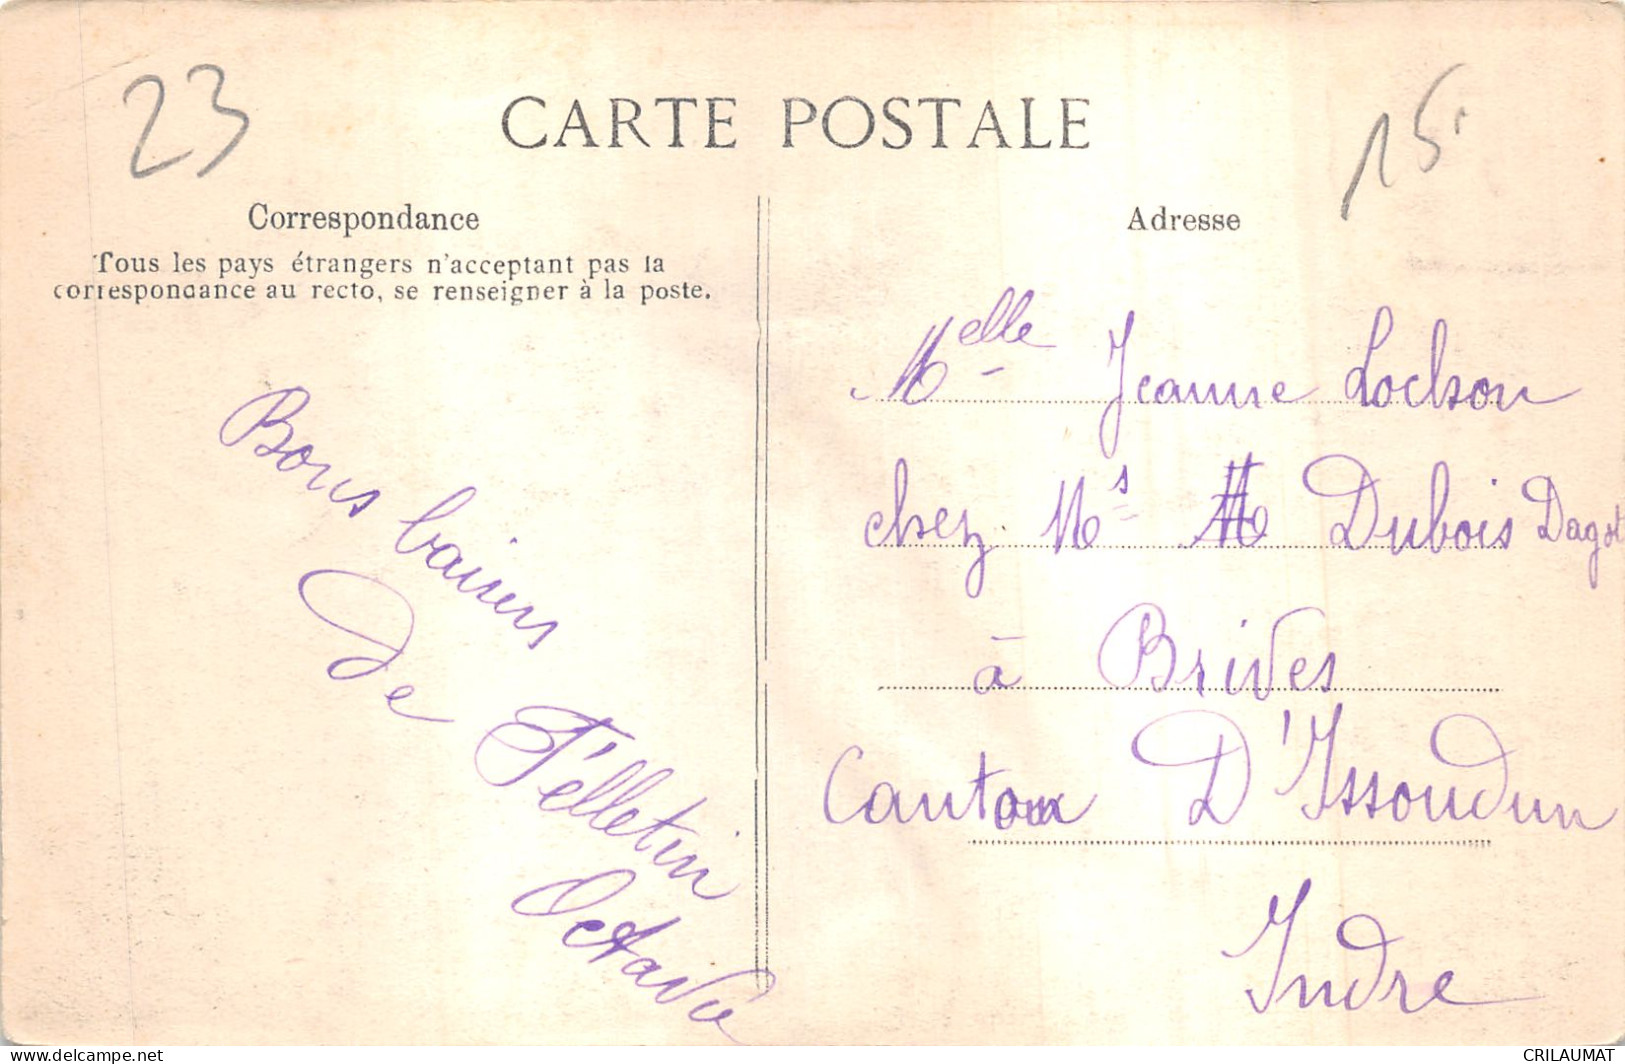 23
CARTE POSTALE
15
Correspondance
Tous les pays étrangers n'acceptant pas la
correspondance au recto, se renseigner à la poste.
Bons baisers
de Félletin
Octavie
Adresse
Melle Jeanne
chez Ms Dubois Dagot
à Brives
Canton D'Issoudun
Indre
delcampe.net
CRILAUMAT